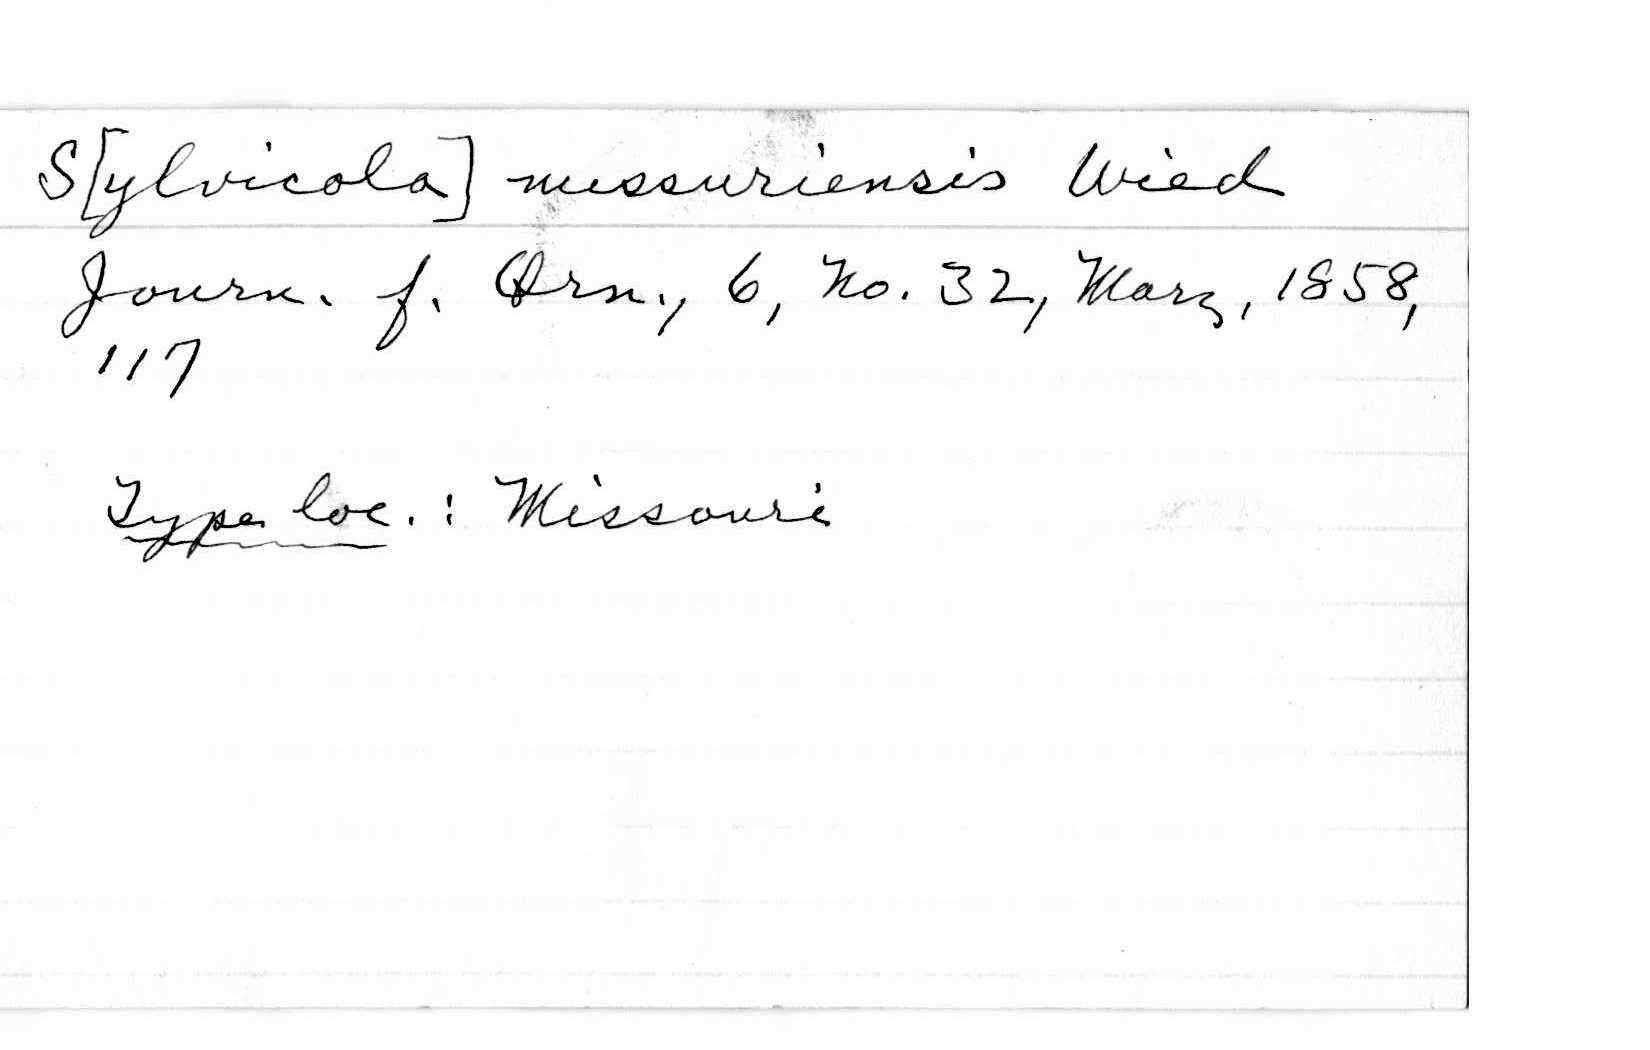 S[ylvicola] missuriensis Wied
Journ. f. Orn., 6, No. 32, Marz, 1858,
117
Type loc. : Missouri